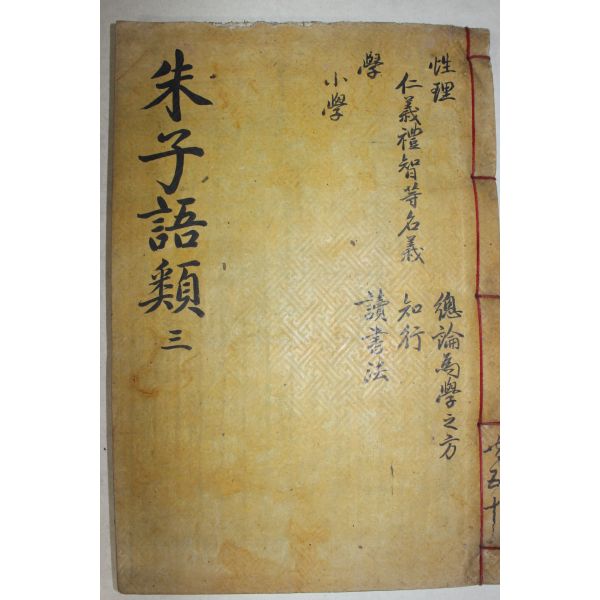 朱子語類 三
性理
仁義禮智等名義
學
小學
總論為學之方
知行
讀書法
共五十